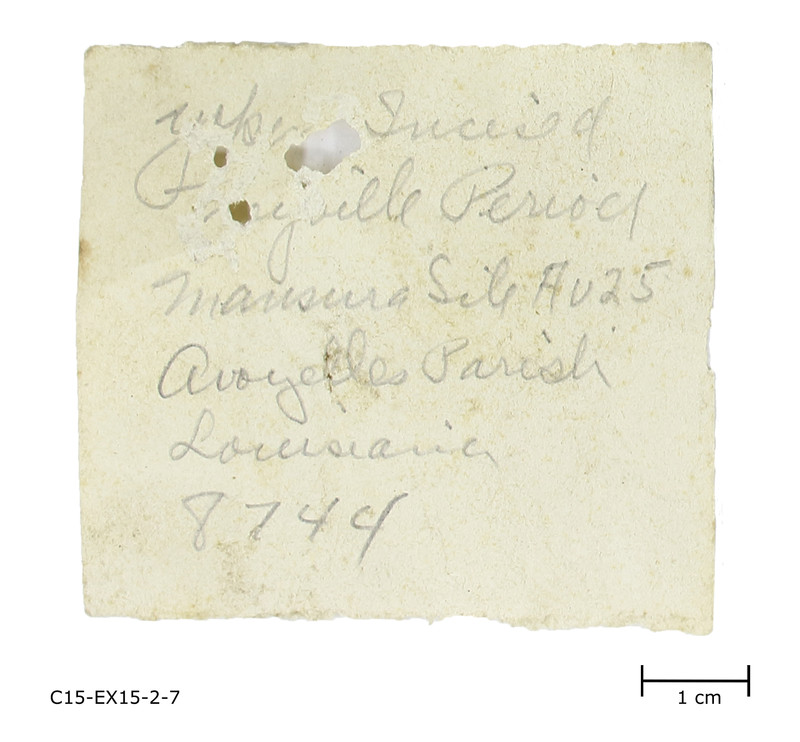 Incised
Period
Mansura Site Av25
Avoyelles Parish
Louisiana
8744
C15-EX15-2-7
1 cm